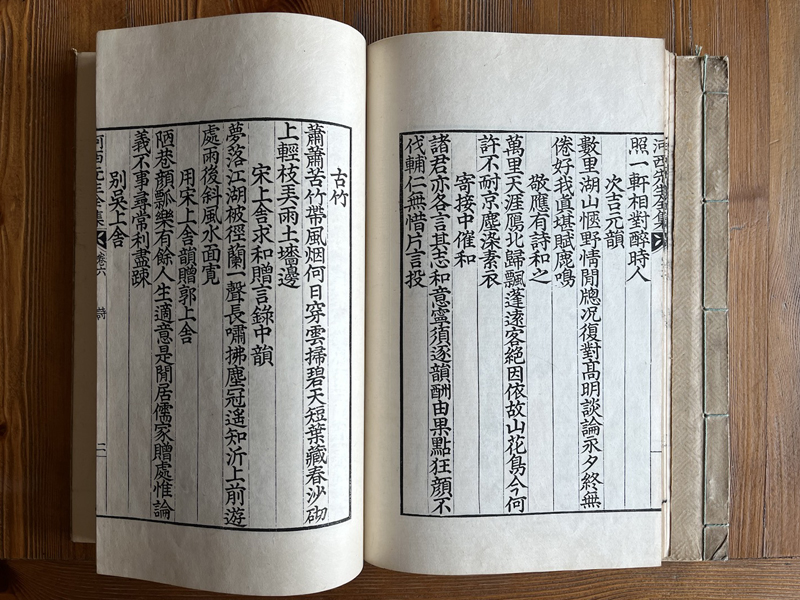 河西先生全集
照一軒相對醉時人
次吉元韻
數里湖山愜野情閒牕况復對高明談論永夕終無
倦好我真堪賦鹿鳴
敬應有詩和之
萬里天涯鴈北歸飄蓬遠客絕因依故山花鳥今何
許不耐京塵染素衣
寄接中催和
諸君亦各言其志和意寧須逐韻酬由果點狂顔不
伐輔仁無惜片言投
古竹
蕭蕭苦竹帶風烟何日穿雲掃碧天短葉藏春沙砌
上輕枝弄雨土墻邊
宋上舍求和贈言錄中韻
夢落江湖被徑蘭一聲長嘯拂塵冠遙知沂上前遊
處雨後斜風水面寬
用宋上舍韻贈郭上舍
陋巷顔瓢樂有餘人生適意是閒居儒家贈處惟論
義不事尋常利盡踈
别吳上舍
河西先生全集 卷六 詩 二